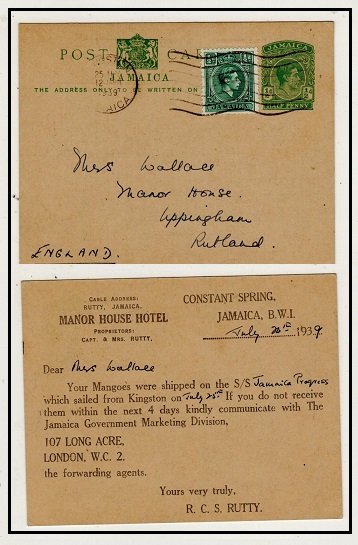 POST CARD
JAMAICA
THE ADDRESS ONLY TO BE WRITTEN ON
25 JY
12
1939
JAMAICA
JAMAICA
HALF PENNY
Mrs Wallace
Manor House.
Uppingham
Rutland.
ENGLAND.
CABLE ADDRESS:
RUTTY, JAMAICA.
MANOR HOUSE HOTEL
PROPRIETORS:
CAPT. & MRS. RUTTY.
CONSTANT SPRING,
JAMAICA, B.W.I.
July 1939
Dear Mrs Wallace
Your Mangoes were shipped on the S/S Jamaica Progress
which sailed from Kingston on July 25th If you do not receive
them within the next 4 days kindly communicate with The
Jamaica Government Marketing Division,
107 LONG ACRE,
LONDON, W.C. 2.
the forwarding agents.
Yours very truly,
R. C. S. RUTTY.